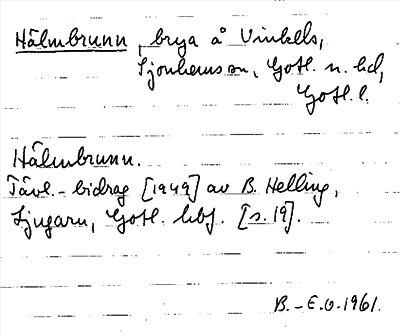 Hälmbrunn, brya å Vinkels,
Sjonhems sn, Gotl. n. hd,
Gotl. l.
Hälmbrunn.
Tävl.-bidrag [1949] av B. Helling,
Ljugarn, Gotl. hbf. [s. 19].
B.-E.O. 1961.